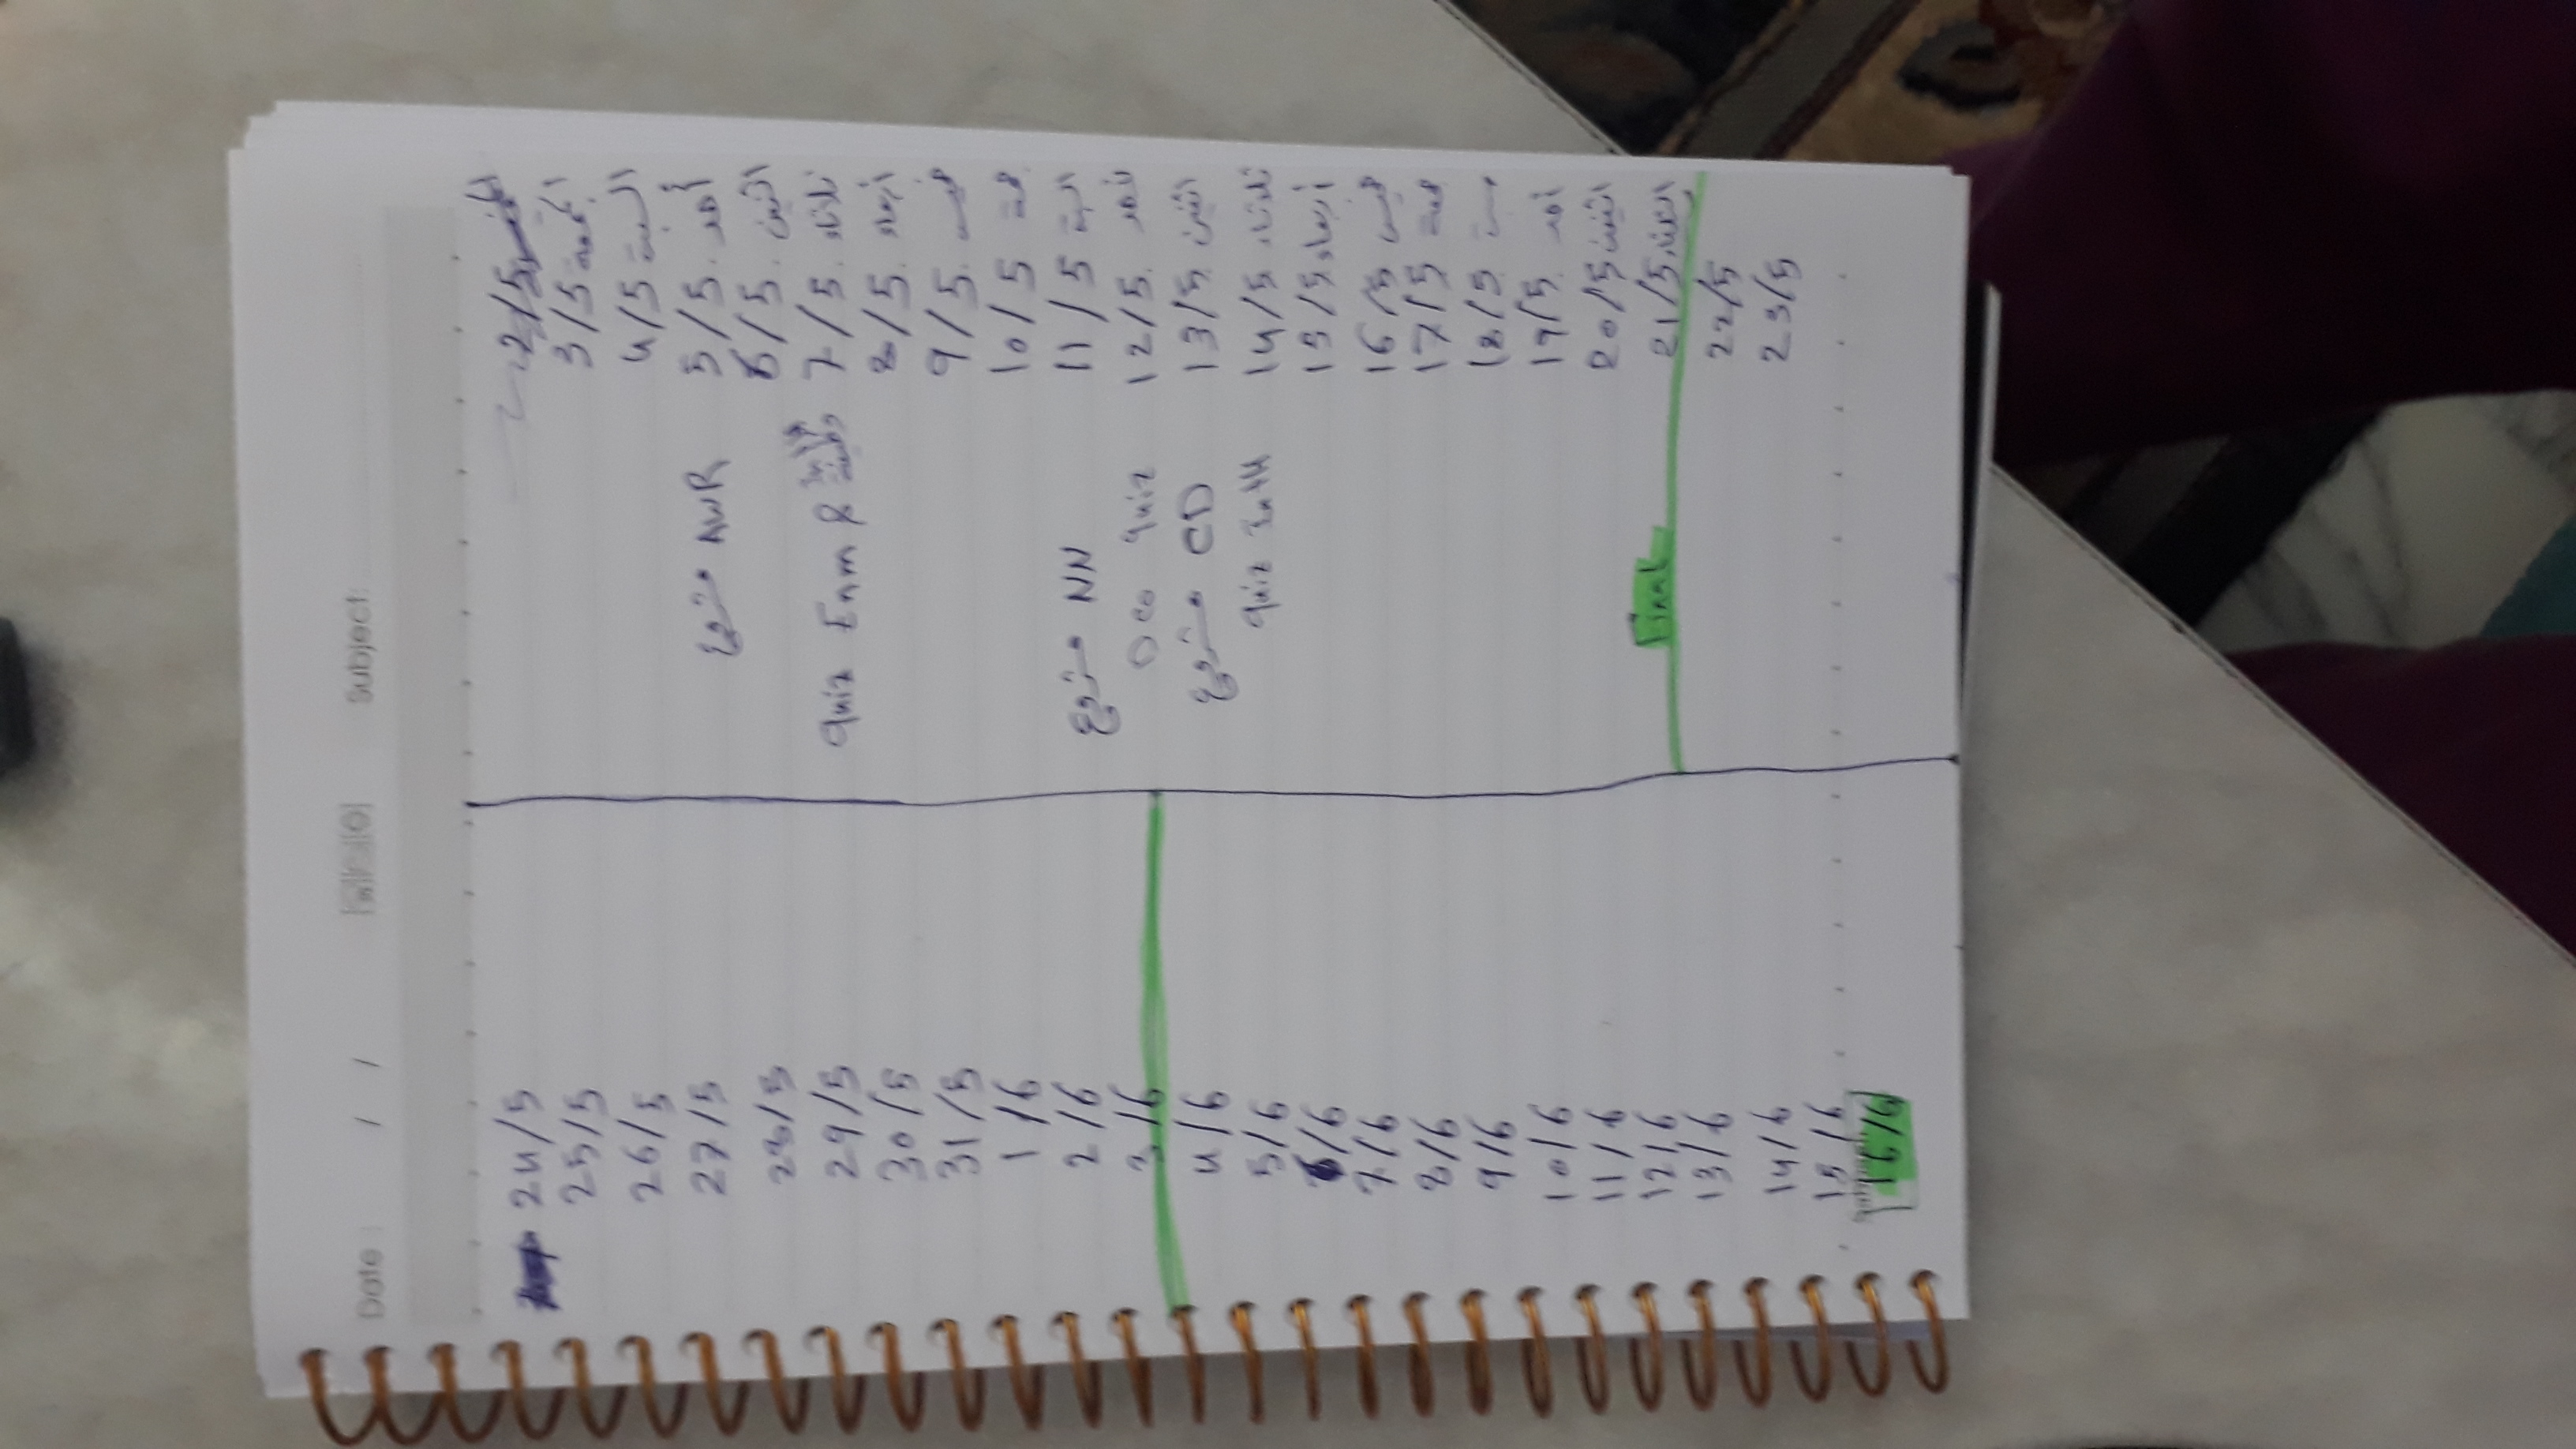 Date : / / Subject:
الخميس 2/5
الجمعة 3/5
السبت 4/5
أحد 5/5 AWR مشروع
اثنين 6/5
ثلاثاء 7/5 Quiz Enm &
أربعاء 8/5
خميس 9/5
جمعة 10/5
السبت 11/5 NN مشروع
أحد 12/5 Dco Quiz
اثنين 13/5 CD مشروع
ثلاثاء 14/5 Quiz IntH
أربعاء 15/5
خميس 16/5
جمعة 17/5
سبت 18/5
أحد 19/5
اثنين 20/5
21/5 Final
22/5
23/5
24/5
25/5
26/5
27/5
28/5
29/5
30/5
31/5
1/6
2/6
3/6
4/6
5/6
6/6
7/6
8/6
9/6
10/6
11/6
12/6
13/6
14/6
15/6
16/6